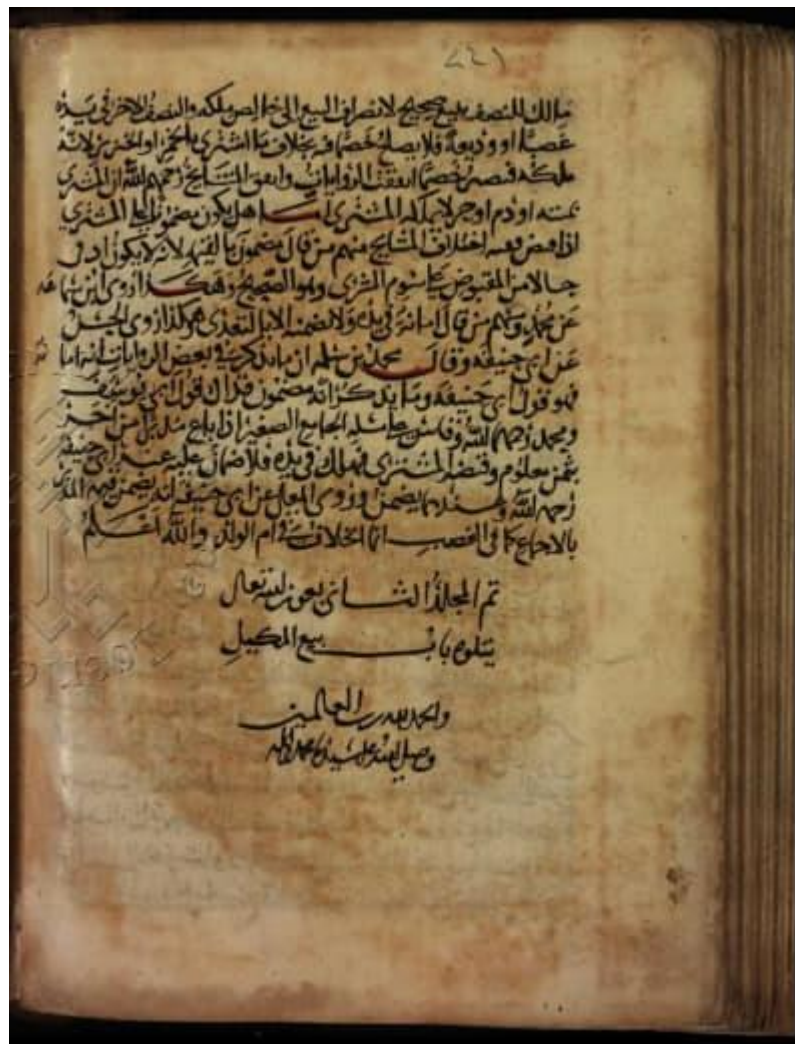 ٢٤١
مالك للنصف ببيع صحيح لانصراف البيع الى خالص ملكه والنصف الاخر في يده
غصبا او وديعة فلا يصلح خصما فيه بخلاف ما اشترى بالخمر او الخنزير لانه
ملكه فيصير خصما اتفقت الروايات واتفق المشايخ رحمهم الله ان المشترى
بميتة او دم او حر لا يملكه المشترى اما هل يكون مضمونا على المشترى
اذا قبض وفيه اختلاف المشايخ منهم من قال مضمون بالقيمة لانه لا يكون ادنى
حالا من المقبوض على سوم الشرى وهو الصحيح وهكذا روى ابن سماعه
عن محمد ومنهم من قال امانة في يده ولا يضمنه الا بالتعدى هكذا روى الحسن
عن ابى حنيفة وقال محمد بن سلمه ان ما يذكر في بعض الروايات انه امانة
فهو قول ابى حنيفة وما يذكر انه مضمون فذاك قول ابى يوسف
ومحمد رحمهم الله وقاس على مسئلة الجامع الصغير اذا باع مدبرا من اخر
بثمن معلوم وقبضه المشترى فهلك في يده فلا ضمان عليه عند ابى حنيفة
رحمه الله وعندهما يضمن وروى المعلى عن ابى حنيفة انه يضمن قيمة المدبر
بالاجماع كما في الغصب انما الخلاف في ام الولد والله اعلم
تم المجلد الثانى بعون الله تعالى
يتلوه باب بيع المكيل
والحمد لله رب العالمين
وصلى الله على سيدنا محمد واله